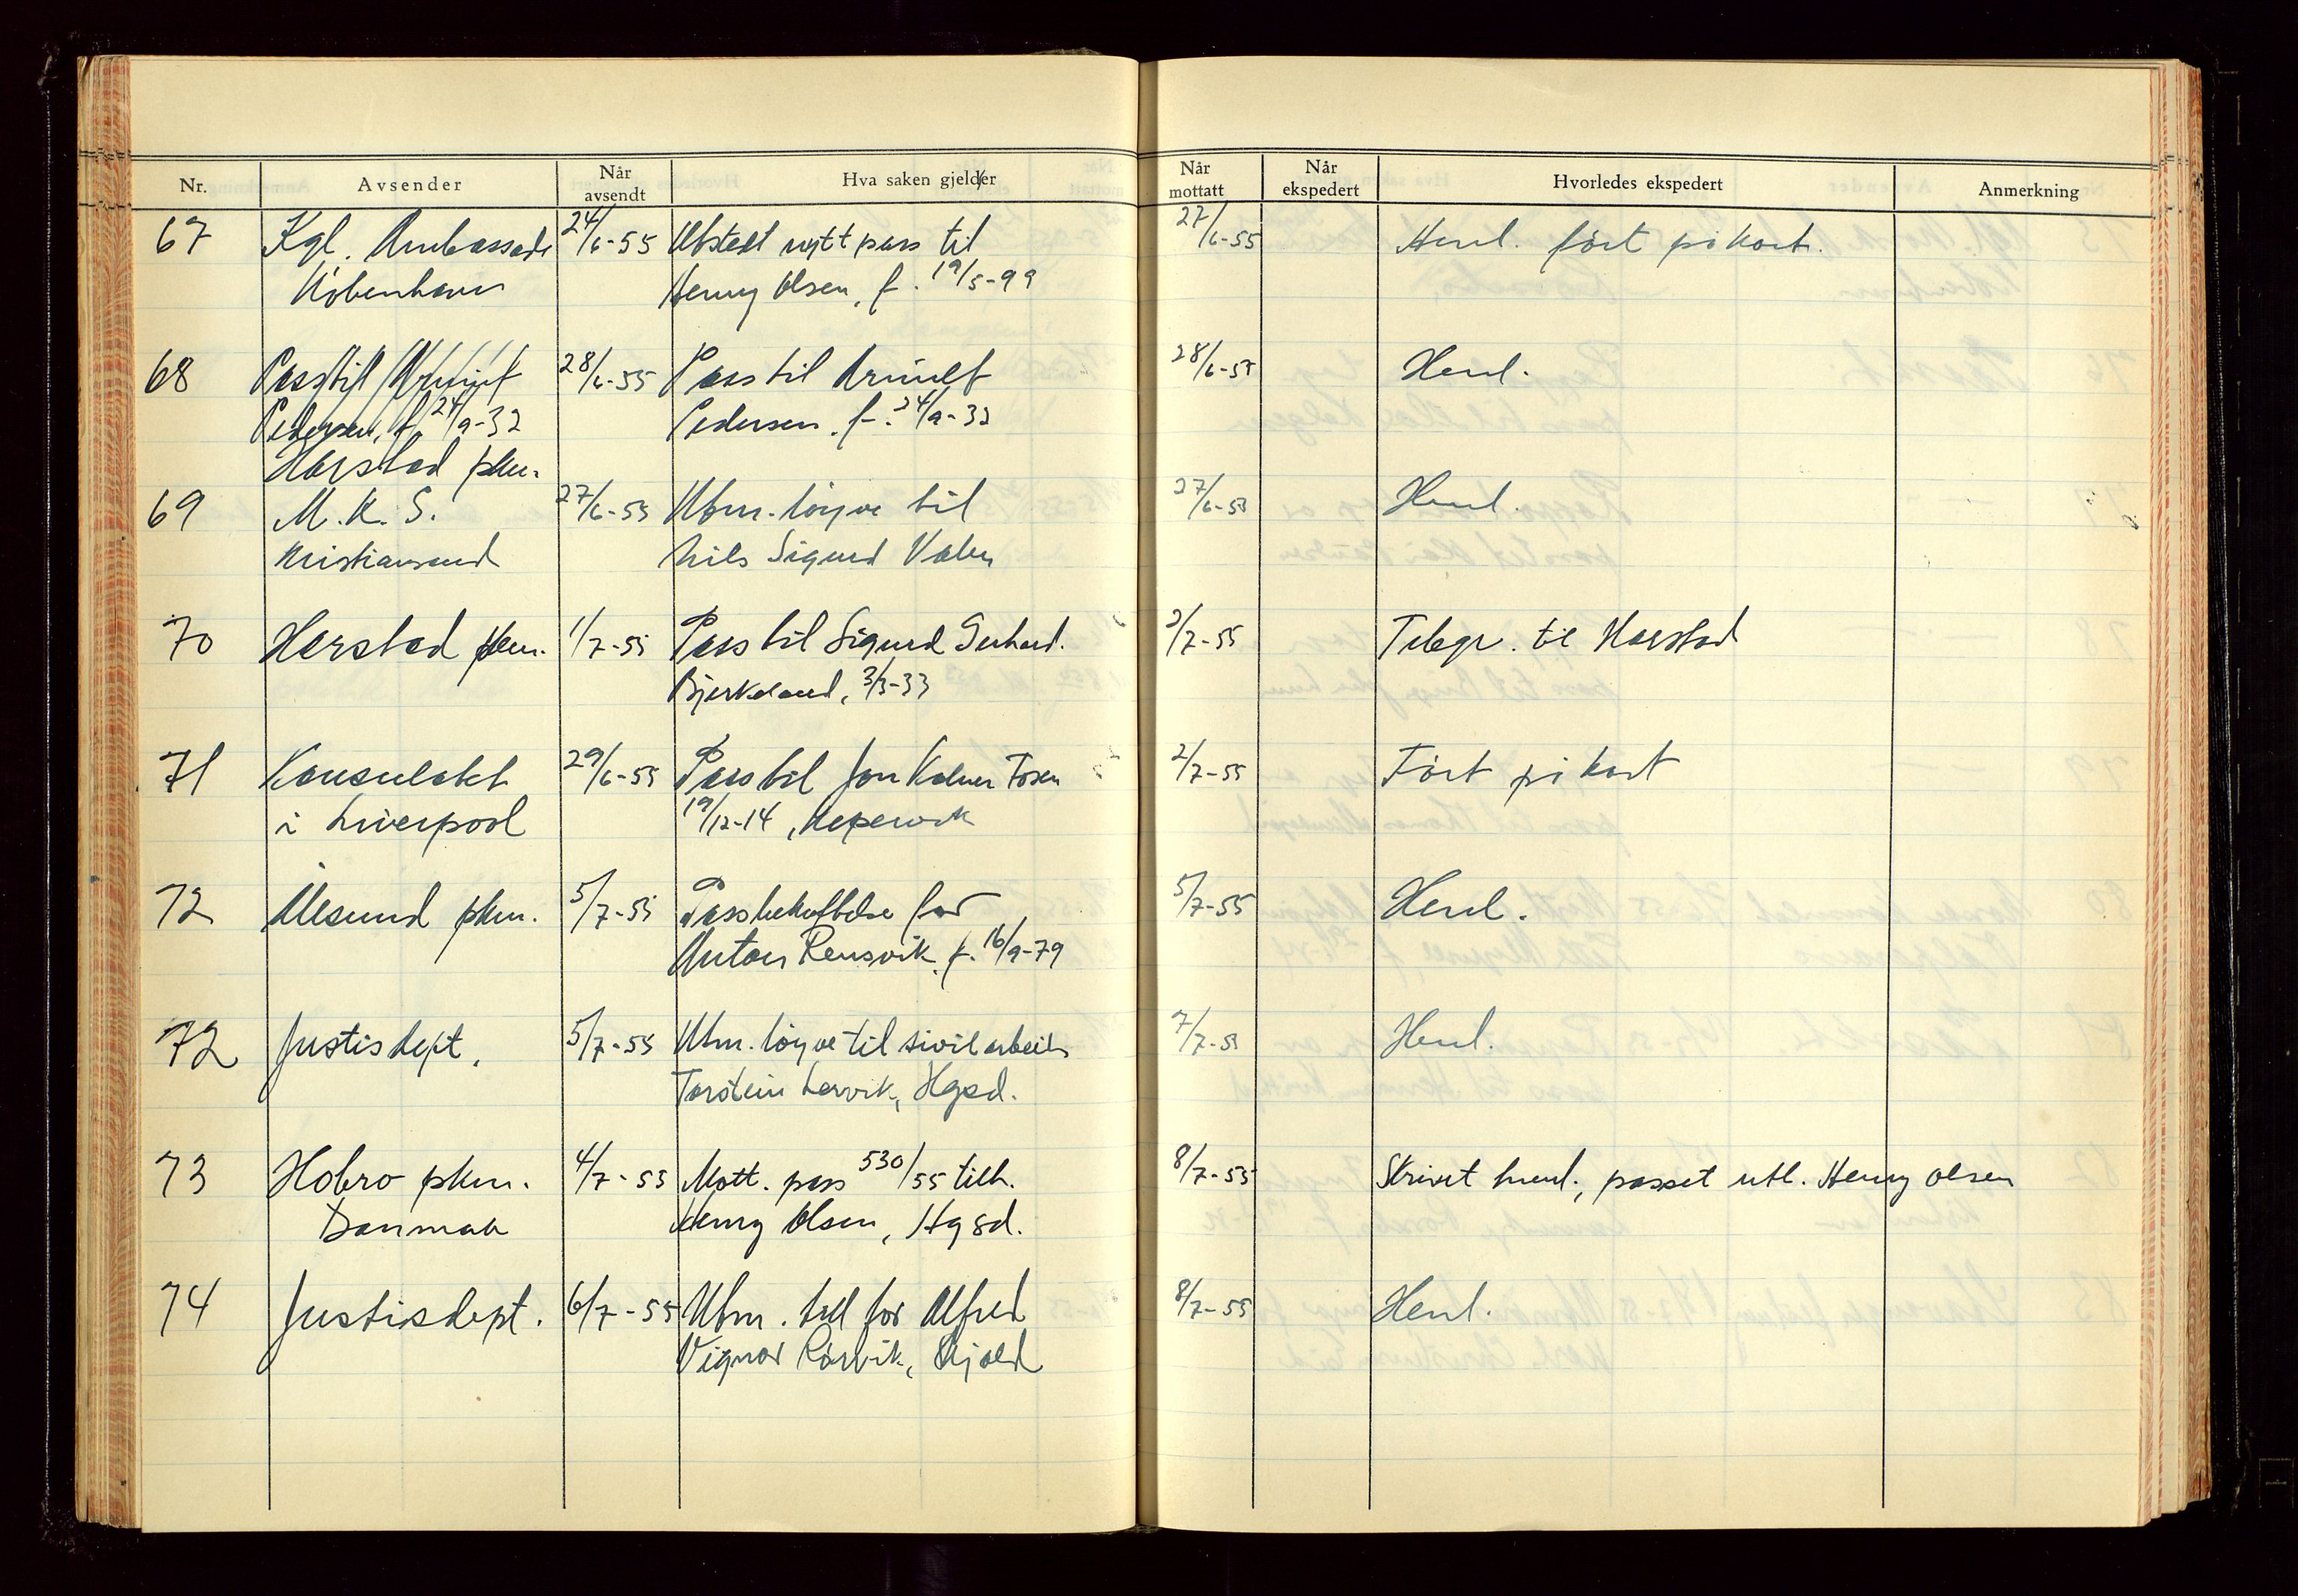 Nr.
Avsender
Når avsendt
Hva saken gjelder
Når mottatt
Når ekspedert
Hvorledes ekspedert
Anmerkning
67 Kgl. Ambassade 24/6-55 Utstedt nytt pass til 27/6-55 Henl. ført på kort.
København Henry Olsen, f. 19/5-99
68 Pass til Arnulf 28/6-55 Pass til Arnulf 28/6-55 Henl.
Pedersen, f. 24/9-32 Pedersen. f. 24/9-32
Harstad pkm.
69 M.K.S. 27/6-55 Utm. løyve til 27/6-55 Henl.
Kristiansand Nils Sigurd Valen
70 Harstad pkm. 1/7-55 Pass til Sigurd Gerhard. 2/7-55 Telegr. til Harstad
Bjerkeland, 3/3-33
71 Konsulatet 29/6-55 Pass til Jon Kalner Tosen 2/7-55 Ført på kort
i Liverpool 19/12-14,
72 Ålesund pkm. 5/7-55 Passbekreftelse for 5/7-55 Henl.
Anton Rensvik, f. 16/9-79
72 Justisdept. 5/7-55 Utm. løyve til sivilarbeider 7/7-55 Henl.
Torstein Lervik, Hgsd.
73 Hobro pkm. 4/7-55 Mott. pass 530/55 tilh. 8/7-55 Skrivet henl., passet utl. Henry Olsen
Danmark Henry Olsen, Hgsd.
74 Justisdept. 6/7-55 Utm. till for Alfred 8/7-55 Henl.
Vignar Rørvik, Skjold